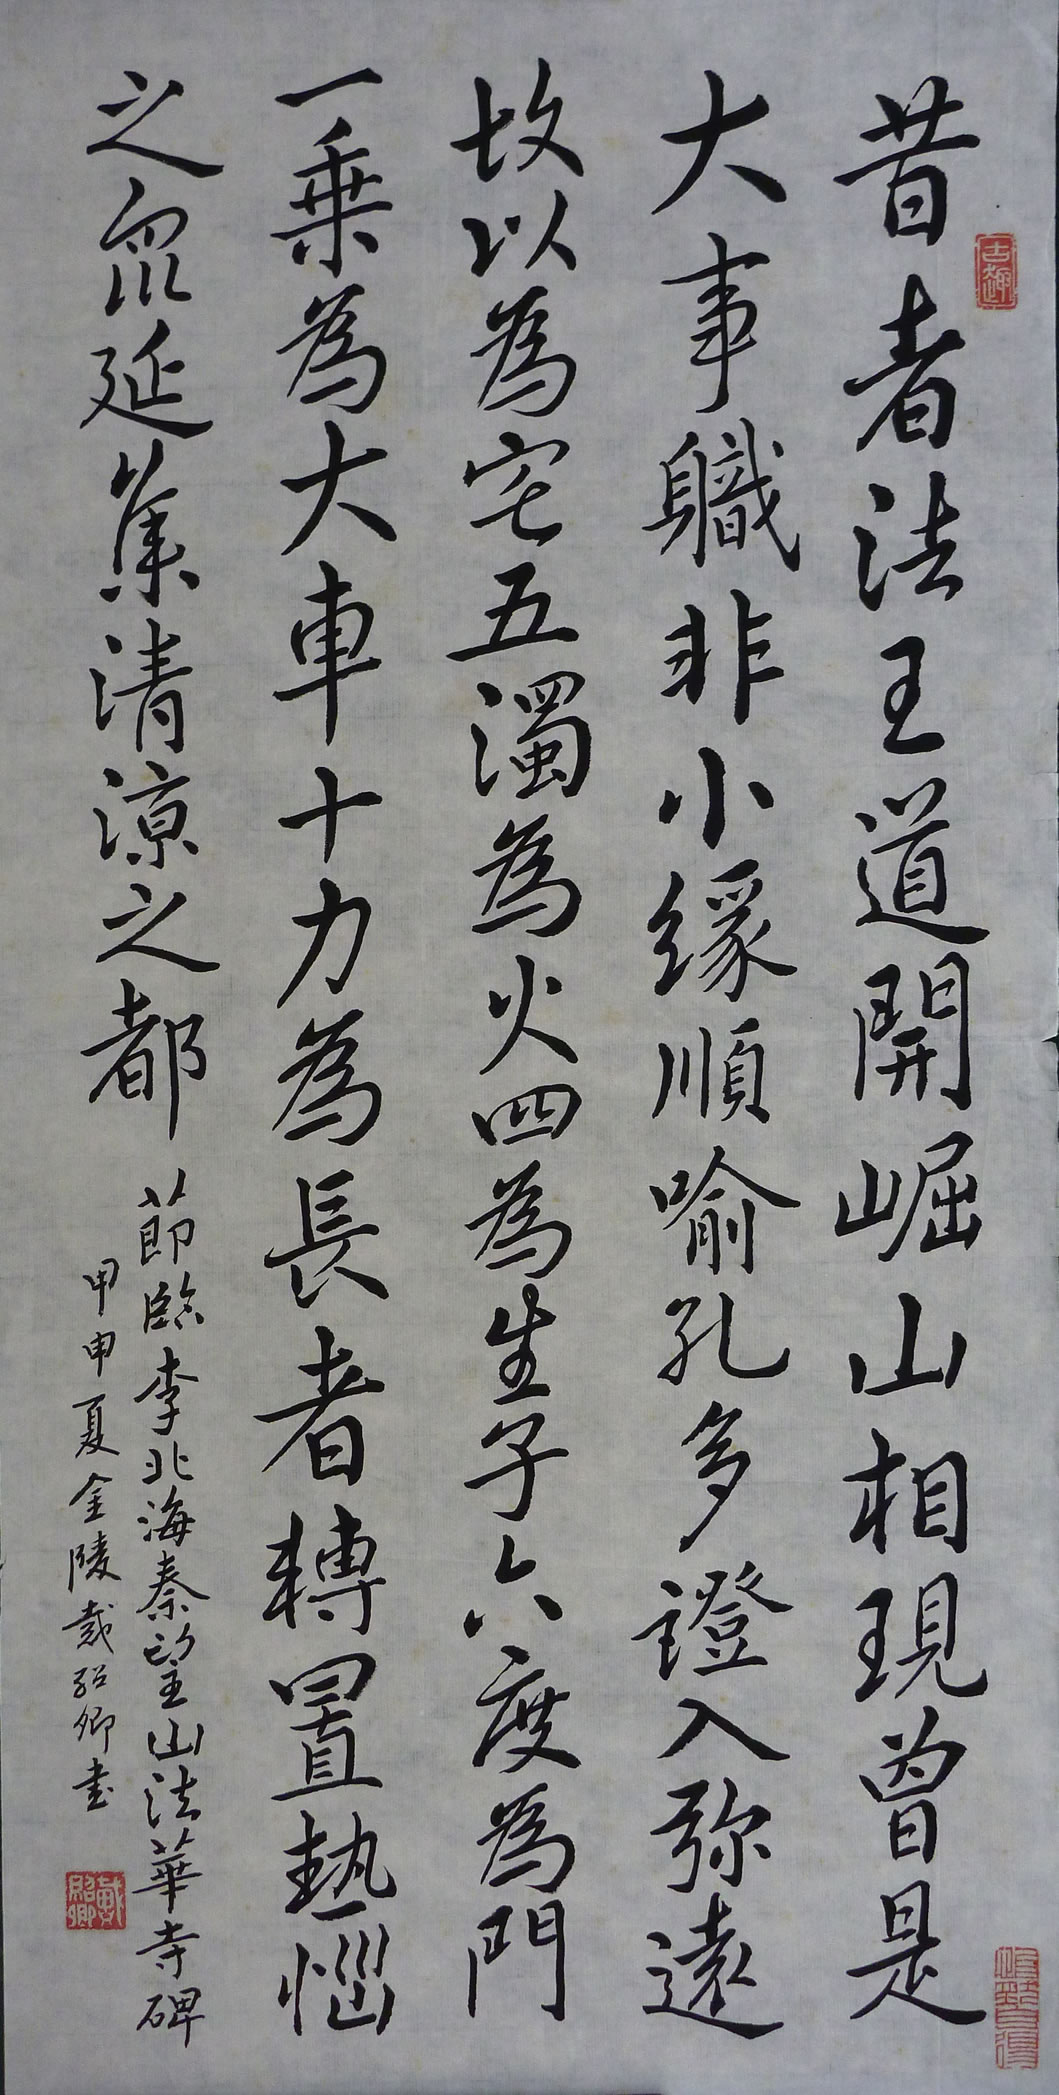 昔者法王道開崛山相現曾是
大事職非小緣順喻孔多證入弥遠
故以為宅五濁為火四為生子六度為門
一乗為大車十力為長者轉置熱惱
之眾延集清涼之都
節臨李北海秦望山法華寺碑
甲申夏金陵戴紹卿書
古趣
戴紹卿